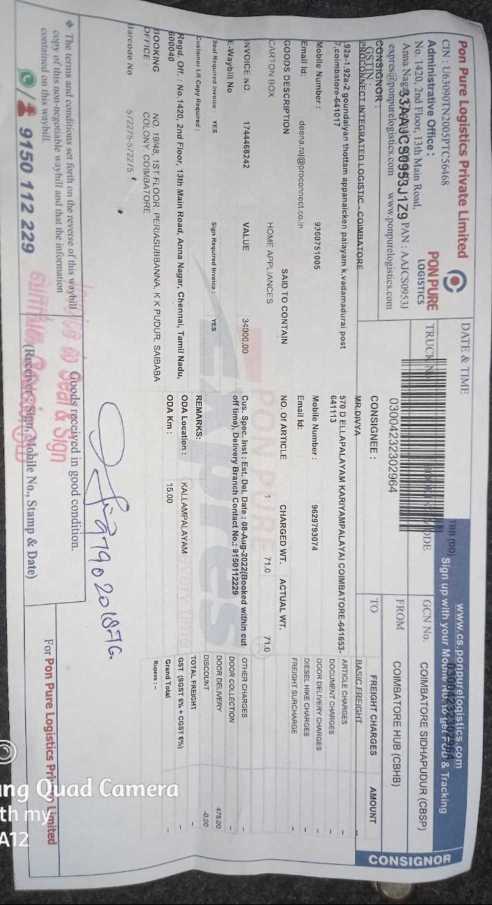 Pon Pure Logistics Private Limited
CIN : U63090TN2005PTC56468
Administrative Office :
No. 1420, 2nd Floor, 13th Main Road,
Anna Nagar
33AAJCS0953J1Z9 PAN : AAJCS0953J
expro@ponpurelogistics.com www.ponpurelogistics.com
PON PURE
LOGISTICS
DATE & TIME
TRUCK N
0300423232302964
www.cs.ponpurelogistics.com
Sign up with your Mobile No. to get POD & Tracking
GCN No. COIMBATORE SIDHAPUDUR (CBSP)
FROM COIMBATORE HUB (CBHB)
TO
CONSIGNOR
CONSIGNOR :
GSTIN
PROCONNECT INTEGRATED LOGISTIC - COIMBATORE
92a-1 92a-2 goundaiyan thottam appanaicken palayam k.vadamadurai post
7,coimbatore-641017
Mobile Number : 9360751005
Email Id: deena.raj@proconnect.co.in
CONSIGNEE :
MR.DIVYA
570 D ELLAPALAYAM KARIYAMPALAYAI COIMBATORE-641653-
641113
Mobile Number : 9629793074
Email Id:
GOODS DESCRIPTION SAID TO CONTAIN NO. OF ARTICLE CHARGED WT. ACTUAL WT.
CARTON BOX HOME APPLIANCES 1 71.0 71.0
INVOICE NO 1744468242 VALUE 34000.00
E-Waybill No
Seal Required Invoice YES Sign Required Invoice : YES
Customer LR Copy Required :
Cus. Spec. Inst : Est. Del. Date : 08-Aug-2022(Booked within cut
off time), Delivery Branch Contact No.: 9150112229
REMARKS:
ODA Location : KALLAMPALAYAM
ODA Km : 15.00
Regd. Off. : No.1420, 2nd Floor, 13th Main Road, Anna Nagar, Chennai, Tamil Nadu,
600040
BOOKING OFFICE : NO.18/48, 1ST FLOOR, PERIASUBBANNA, K K PUDUR, SAIBABA
COLONY, COIMBATORE
Barcode No 572275-572275
FREIGHT CHARGES AMOUNT
BASIC FREIGHT
ARTICLE CHARGES
DOCUMENT CHARGES
DOOR DELIVERY CHARGES
DIESEL HIKE CHARGES
FREIGHT SURCHARGE
OTHER CHARGES
DOOR COLLECTION
DOOR DELIVERY 475.00
DISCOUNT -0.00
TOTAL FREIGHT
GST (SGST 6% + CGST 6%)
Grand Total
Rupees : --
The terms and conditions set forth on the reverse of this waybill
copy of this non-negotiable waybill and that the information
contained on this waybill.
9150 112 229
Goods received in good condition.
(Receiver Sign, Mobile No., Stamp & Date)
Seal & Sign
For Pon Pure Logistics Private Limited
ng Quad Camera
th my
A12